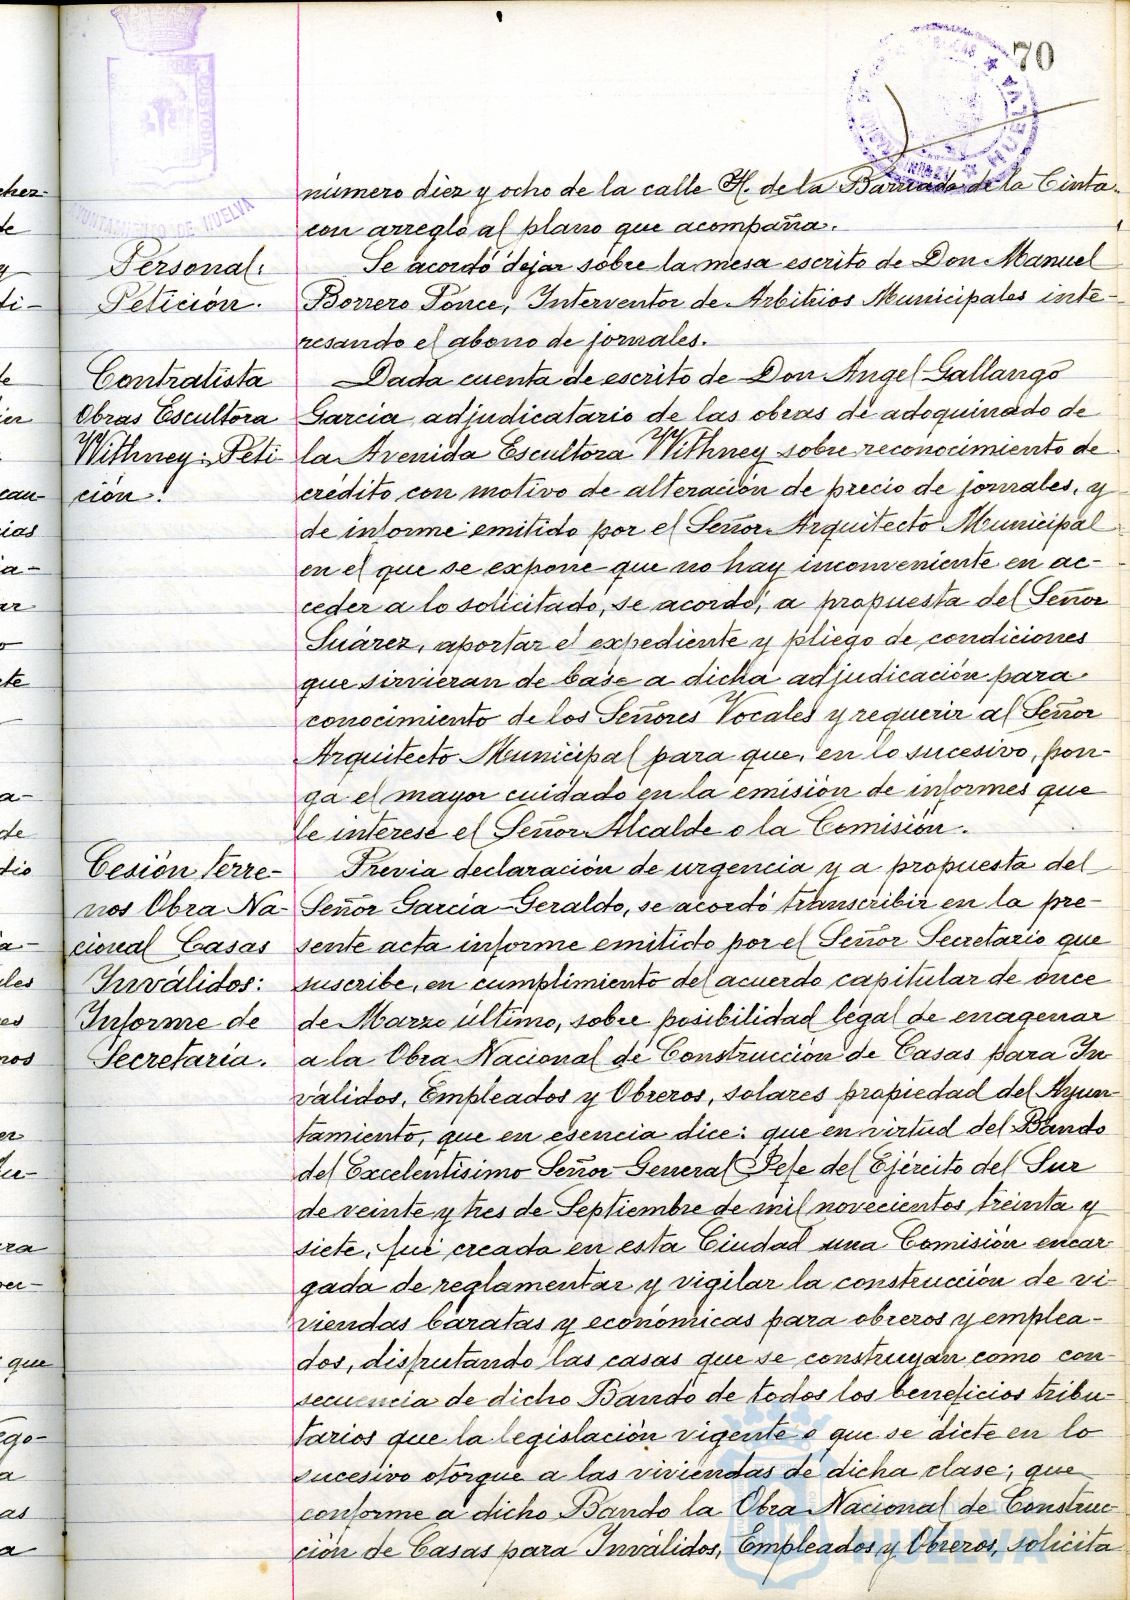 70
AYUNTAMIENTO DE HUELVA
número diez y ocho de la calle H. de la Barriada de la Cinta
con arreglo al plano que acompaña.
Personal:
Petición.
Se acordó dejar sobre la mesa escrito de Don Manuel
Borrero Ponce, Interventor de Arbitrios Municipales inte-
resando el abono de jornales.
Contratista
Obras Escultora
Withney: Peti
ción.
Dada cuenta de escrito de Don Angel Gallango
García adjudicatario de las obras de adoquinado de
la Avenida Escultora Withney sobre reconocimiento de
crédito con motivo de alteración de precio de jornales, y
de informe emitido por el Señor Arquitecto Municipal
en el que se expone que no hay inconveniente en ac-
ceder a lo solicitado, se acordó, a propuesta del Señor
Suárez, aportar el expediente y pliego de condiciones
que sirvieran de base a dicha adjudicación para
conocimiento de los Señores Vocales y requerir al Señor
Arquitecto Municipal para que, en lo sucesivo, pon-
ga el mayor cuidado en la emisión de informes que
le interese el Señor Alcalde o la Comisión.
Cesión terre-
nos Obra Na-
cional Casas
Inválidos:
Informe de
Secretaría.
Previa declaración de urgencia y a propuesta del
Señor García-Geraldo, se acordó transcribir en la pre-
sente acta informe emitido por el Señor Secretario que
suscribe, en cumplimiento del acuerdo capitular de once
de Marzo último, sobre posibilidad legal de enagenar
a la Obra Nacional de Construcción de Casas para In-
válidos, Empleados y Obreros, solares propiedad del Ayun-
tamiento, que en esencia dice: que en virtud del Bando
del Excelentísimo Señor General Jefe del Ejército del Sur
de veinte y tres de Septiembre de mil novecientos treinta y
siete, fué creada en esta Ciudad una Comisión encar-
gada de reglamentar y vigilar la construcción de vi-
viendas baratas y económicas para obreros y emplea-
dos, disfrutando las casas que se construyan como con-
secuencia de dicho Bando de todos los beneficios tribu-
tarios que la legislación vigente o que se dicte en lo
sucesivo otorgue a las viviendas de dicha clase; que
conforme a dicho Bando la Obra Nacional de Construc-
ción de Casas para Inválidos, Empleados y Obreros, solicita
HUELVA